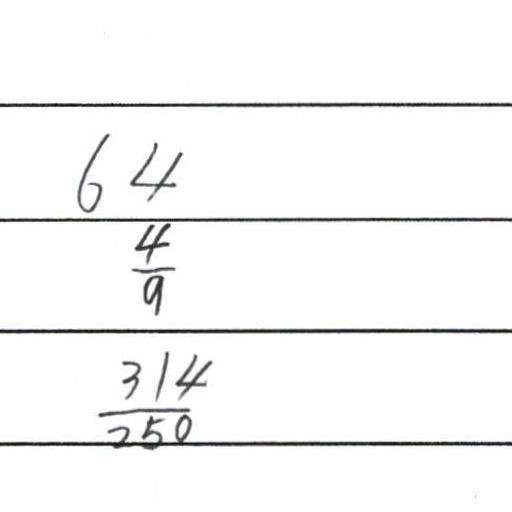 64
4/9
314/250